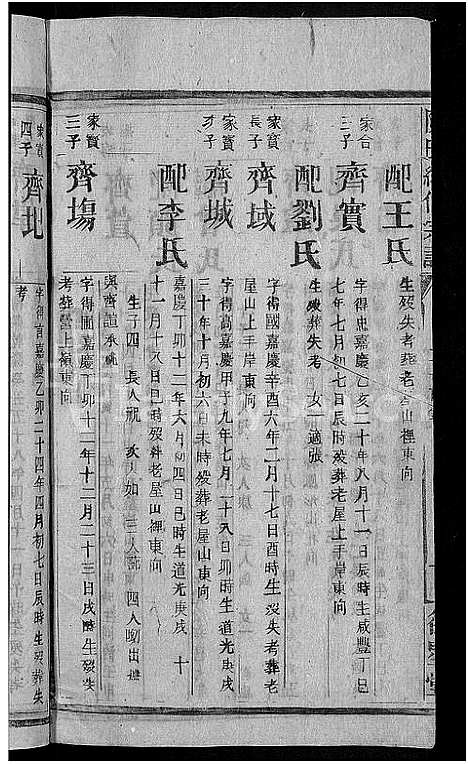 配王氏
生歿失考葬老山裡東向
家合三子
齊實
字得忠嘉慶乙亥二十年八月十一日辰時生咸豐丁巳
七年七月初七日辰時歿葬老屋上手岸東向
配劉氏
生歿葬失考 女一適張
家寶長子
齊域
字得國嘉慶辛酉六年二月十七日酉時生歿失考葬老
屋山上手岸東向
家寶次子
齊城
字得高嘉慶甲子九年七月二十八日卯時生道光庚戌
三十年十月初六日未時歿葬老屋山東向
配李氏
嘉慶丁卯十二年六月初四日巳時生道光庚戌 十
十一月十八日巳時歿葬老屋山裡東向
生子四 長人祝 次人如 三人 四人 出嗣
與齊道承祧
家寶三子
齊塲
字得圃嘉慶丁卯十二年十二月二十三日戌時生歿失
考葬營上嶺東向
家寶四子
齊圯
字得 嘉慶乙卯二十四年四月初七日辰時生歿葬失
考